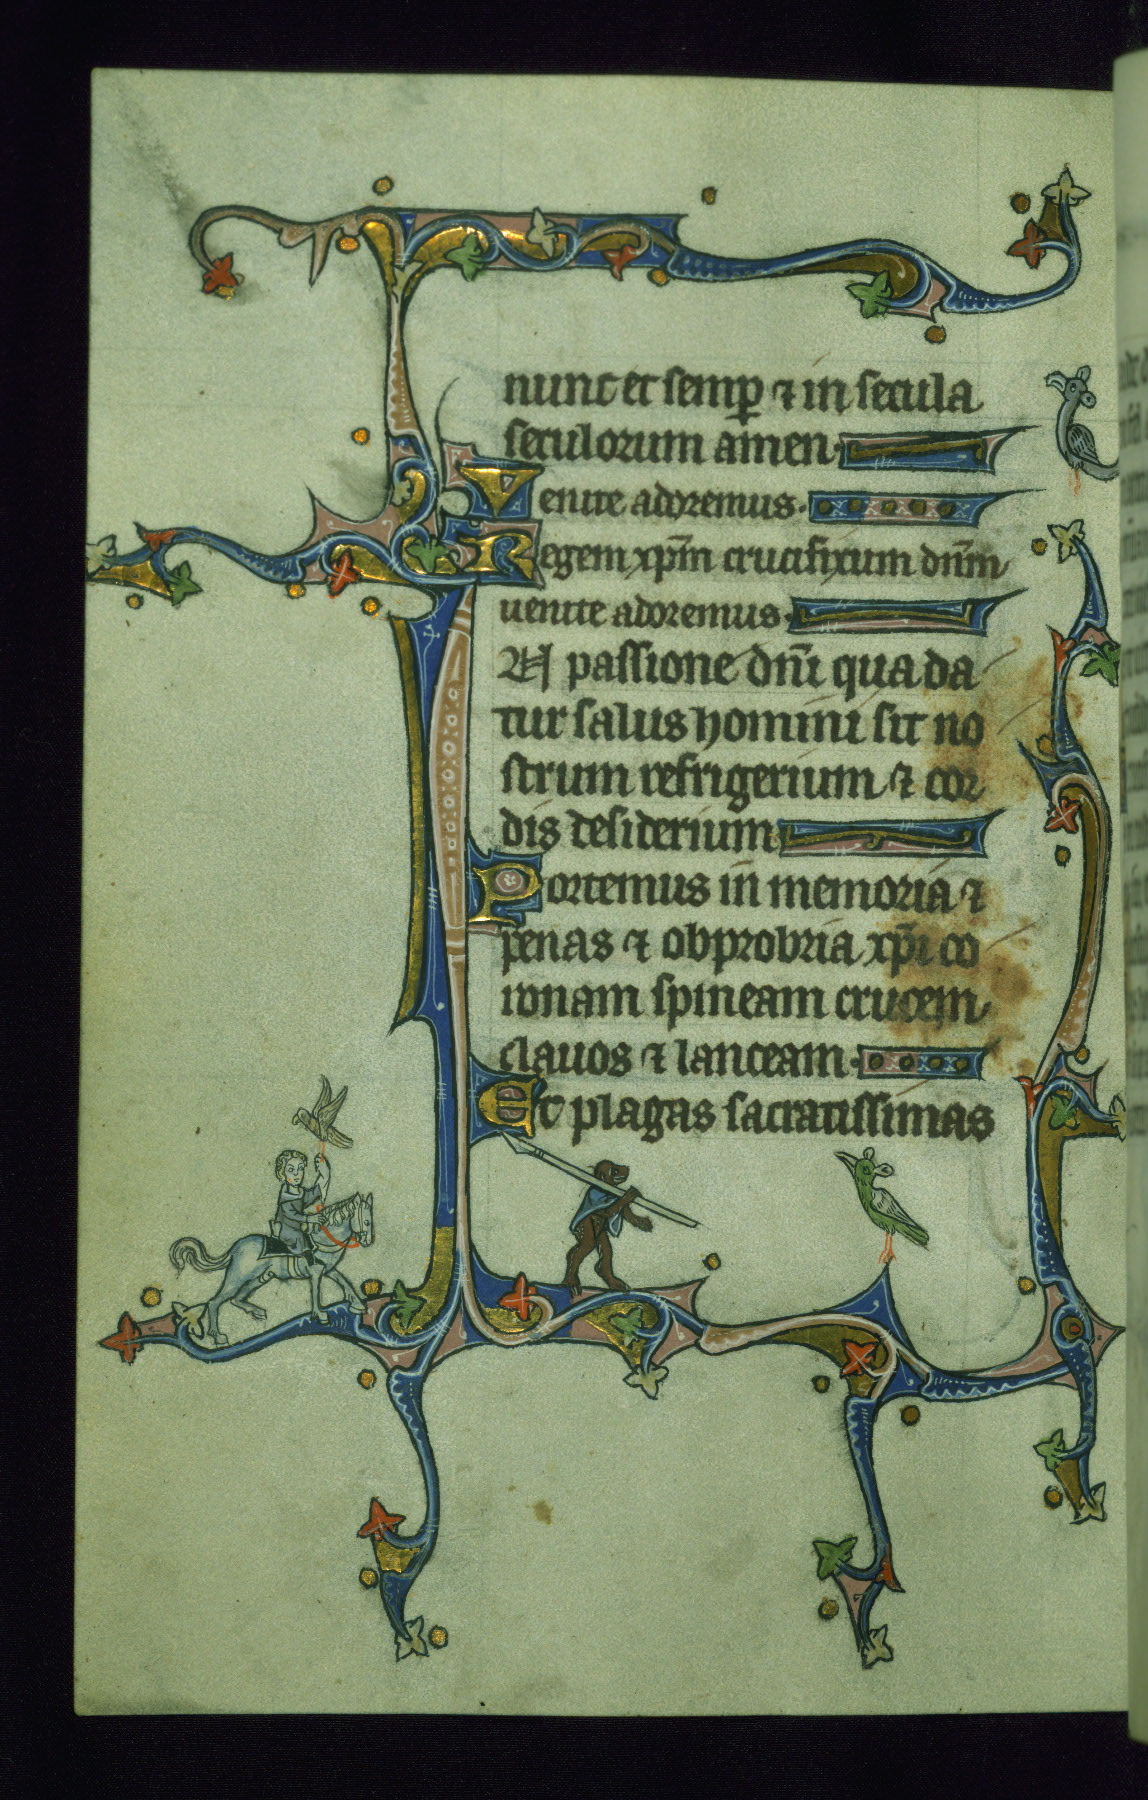 nunc et semp̲ ⁊ in secula
seculorum amen.
Venite adoremus.
Regem xp̄m crucifixum dn̄m
uenite adoremus.
In passione dn̄i qua da
tur salus homini sit no
strum refrigerium ⁊ cor
dis desiderium
Portemus in memoria ⁊
penas ⁊ obprobria xp̄i co
ronam spineam crucem
clauos ⁊ lanceam.
Et plagas sacratissimas